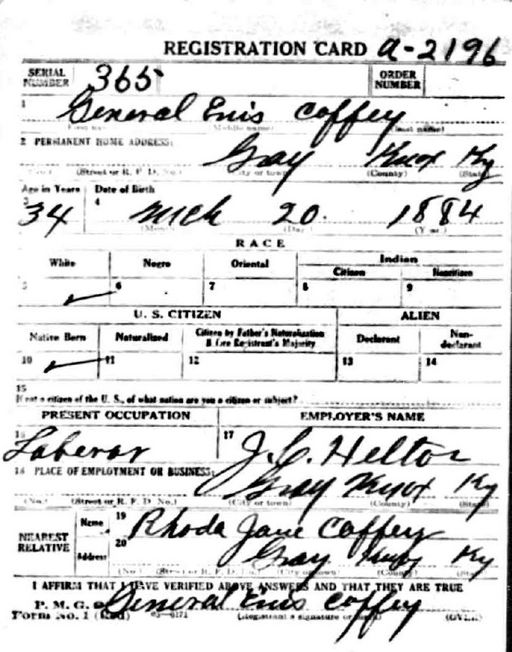 REGISTRATION CARD A-2196
SERIAL NUMBER 365 ORDER NUMBER
1 General Enis Coffey
(Middle name) (Last name)
2 PERMANENT HOME ADDRESS:
Gray Knox Ky
(No.) (Street or R. F. D. No.) (City or town) (County) (State)
Age in Years Date of Birth
3 34 4 Mch 20. 1884
(Month) (Day) (Year)
RACE
White Negro Oriental Indian
Citizen Noncitizen
5 ✓ 6 7 8 9
U. S. CITIZEN ALIEN
Native Born Naturalized Citizen by Father's Naturalization Before Registrant's Majority Declarant Non-declarant
10 ✓ 11 12 13 14
15
If not a citizen of the U. S., of what nation are you a citizen or subject?
PRESENT OCCUPATION EMPLOYER'S NAME
16 Laberor 17 J. C. Helton
18 PLACE OF EMPLOYMENT OR BUSINESS:
Gray Knox Ky
(No.) (Street or R. F. D. No.) (City or town) (County) (State)
NEAREST RELATIVE Name 19 Rhoda Jane Coffey
Address 20 Gray Knox Ky
(No.) (Street or R. F. D. No.) (City or town) (County) (State)
I AFFIRM THAT I HAVE VERIFIED ABOVE ANSWERS AND THAT THEY ARE TRUE
P. M. G. O. General Enis Coffey
Form No. 1 (Red) (Registrant's signature or mark) (OVER)